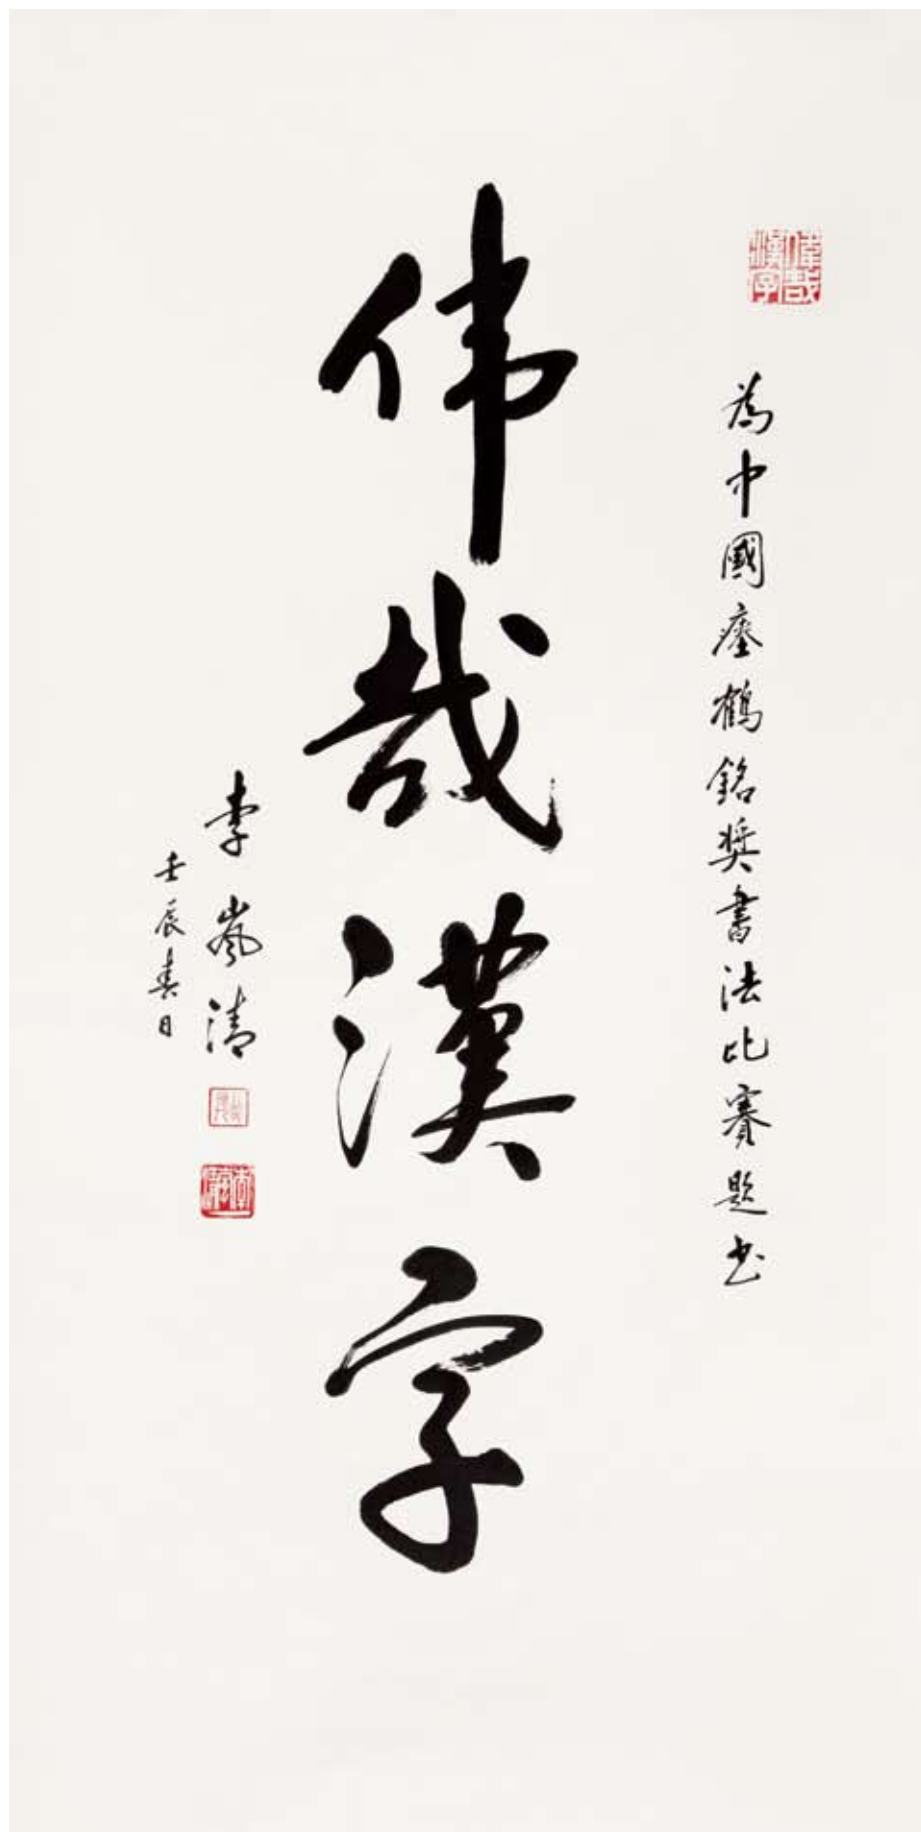 偉哉漢字
為中國瘞鶴銘奨書法比賽題书
伟哉漢字
李嵐清
壬辰春日
李嵐清